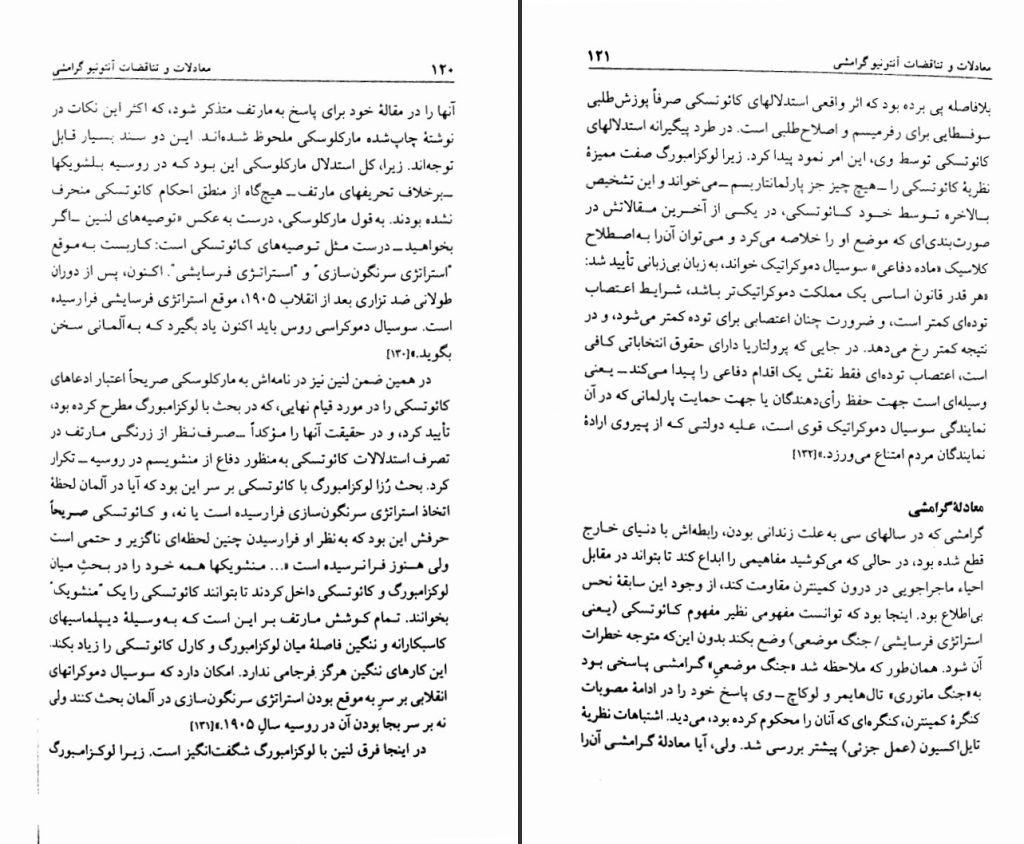 ۱۲۰ معادلات و تناقضات آنتونیو گرامشی
آنها را در مقالهٔ خود برای پاسخ به‌مارتف متذکر شود، که اکثر این نکات در
نوشتهٔ چاپ‌شده مارکلوسکی ملحوظ شده‌اند. این دو سند بسیار قابل
توجه‌اند. زیرا، کل استدلال مارکلوسکی این بود که در روسیه بلشویکها
ــ‌برخلاف تحریفهای مارتف‌ــ هیچ‌گاه از منطق احکام کائوتسکی منحرف
نشده بودند. به‌قول مارکلوسکی، درست به‌عکس «توصیه‌های لنین ــ‌اگر
بخواهید‌ــ درست مثل توصیه‌های کائوتسکی است: کاربست به‌موقع
"استراتژی سرنگون‌سازی" و "استراتژی فرسایشی". اکنون، پس از دوران
طولانی ضد تزاری بعد از انقلاب ۱۹۰۵، موقع استراتژی فرسایشی فرارسیده
است. سوسیال دموکراسی روس باید اکنون یاد بگیرد که به‌آلمانی سخن
بگوید.»[۱۳۰]
در همین ضمن لنین نیز در نامه‌اش به مارکلوسکی صریحاً اعتبار ادعاهای
کائوتسکی را در مورد قیام نهایی، که در بحث با لوکزامبورگ مطرح کرده بود،
تأیید کرد، و در حقیقت آنها را مؤکداً ــ‌صرف‌نظر از زرنگی مارتف در
تصرف استدلالات کائوتسکی به‌منظور دفاع از منشویسم در روسیه‌ــ تکرار
کرد. بحث رُزا لوکزامبورگ با کائوتسکی بر سر این بود که آیا در آلمان لحظهٔ
اتخاذ استراتژی سرنگون‌سازی فرارسیده است یا نه، و کائوتسکی صریحاً
حرفش این بود که به‌نظر او فرارسیدن چنین لحظه‌ای ناگزیر و حتمی است
ولی هنوز فرانرسیده است «... منشویکها همه خود را در بحثِ میان
لوکزامبورگ و کائوتسکی داخل کردند تا بتوانند کائوتسکی را یک "منشویک"
بخوانند. تمام کوشش مارتف بر این است که به‌وسیلهٔ دیپلماسیهای
کاسبکارانه و ننگین فاصلهٔ میان لوکزامبورگ و کارل کائوتسکی را زیاد بکند.
این کارهای ننگین هرگز فرجامی ندارد. امکان دارد که سوسیال دموکراتهای
انقلابی بر سرِ به‌موقع بودن استراتژی سرنگون‌سازی در آلمان بحث کنند ولی
نه بر سر بجا بودن آن در روسیه سالِ ۱۹۰۵.»[۱۳۱]
در اینجا فرق لنین با لوکزامبورگ شگفت‌انگیز است. زیرا لوکزامبورگ
معادلات و تناقضات آنتونیو گرامشی ۱۲۱
بلافاصله پی برده بود که اثر واقعی استدلالهای کائوتسکی صرفاً پوزش‌طلبی
سوفسطایی برای رفرمیسم و اصلاح‌طلبی است. در طرد پیگیرانه استدلالهای
کائوتسکی توسط وی، این امر نمود پیدا کرد. زیرا لوکزامبورگ صفت ممیزهٔ
نظریهٔ کائوتسکی را ــ‌هیچ چیز جز پارلمانتاریسم‌ــ می‌خواند و این تشخیص
بالاخره توسط خود کائوتسکی، در یکی از آخرین مقالاتش در
صورت‌بندی‌ای که موضع او را خلاصه می‌کرد و می‌توان آن‌را به‌اصطلاح
کلاسیک «ماده دفاعی» سوسیال دموکراتیک خواند، به‌زبان بی‌زبانی تأیید شد:
«هر قدر قانون اساسی یک مملکت دموکراتیک‌تر باشد، شرایط اعتصاب
توده‌ای کمتر است، و ضرورت چنان اعتصابی برای توده کمتر می‌شود، و در
نتیجه کمتر رخ می‌دهد. در جایی که پرولتاریا دارای حقوق انتخاباتی کافی
است، اعتصاب توده‌ای فقط نقش یک اقدام دفاعی را پیدا می‌کند‌ــ یعنی
وسیله‌ای است جهت حفظ رأی‌دهندگان یا جهت حمایت پارلمانی که در آن
نمایندگی سوسیال دموکراتیک قوی است، علیه دولتی که از پیروی ارادهٔ
نمایندگان مردم امتناع می‌ورزد.»[۱۳۲]
معادلهٔ گرامشی
گرامشی که در سالهای سی به علت زندانی بودن، رابطه‌اش با دنیای خارج
قطع شده بود، در حالی که می‌کوشید مفاهیمی را ابداع کند تا بتواند در مقابل
احیاء ماجراجویی در درون کمینترن مقاومت کند، از وجود این سابقهٔ نحس
بی‌اطلاع بود. اینجا بود که توانست مفهومی نظیر مفهوم کائوتسکی (یعنی
استراتژی فرسایشی / جنگ موضعی) وضع بکند بدون این‌که متوجه خطرات
آن شود. همان‌طور که ملاحظه شد «جنگ موضعیِ» گرامشی پاسخی بود
به‌«جنگ مانوری» تال‌هایمر و لوکاچ‌ــ وی پاسخ خود را در ادامهٔ مصوبات
کنگرهٔ کمینترن، کنگره‌ای که آنان را محکوم کرده بود، می‌دید. اشتباهات نظریهٔ
تایل‌اکسیون (عمل جزئی) پیشتر بررسی شد. ولی، آیا معادلهٔ گرامشی آن‌را